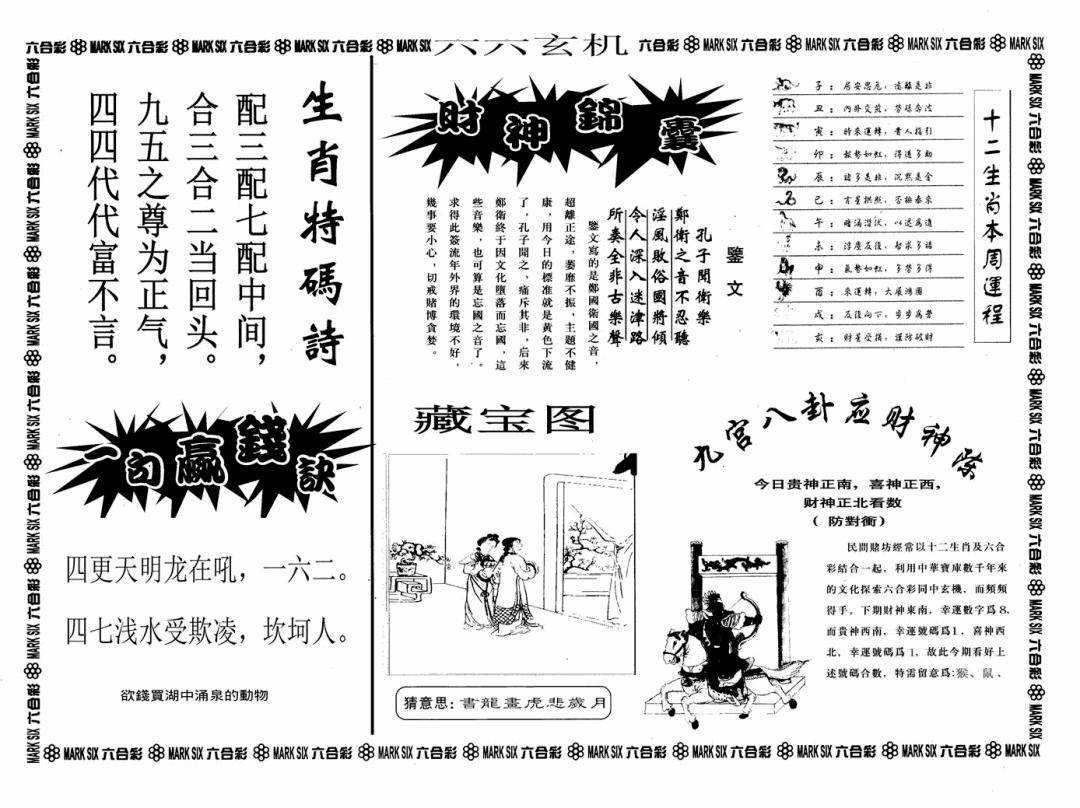 六合彩 MARK SIX 六合彩 MARK SIX 六合彩 MARK SIX 六合彩 MARK SIX 六六玄机 六合彩 MARK SIX 六合彩 MARK SIX 六合彩 MARK SIX 六合彩 MARK SIX
生肖特碼詩
配三配七配中间，
合三合二当回头。
九五之尊为正气，
四四代代富不言。
一句赢錢訣
四更天明龙在吼，一六二。
四七浅水受欺凌，坎坷人。
欲錢買湖中涌泉的動物
財神錦囊
鑒文
孔子聞衛樂
鄭衛之音不忍聽
淫風敗俗國將傾
令人深入迷津路
所奏全非古樂聲
鑒文寫的是鄭國衛國之音，
超離正途，萎靡不振，主題不健
康，用今日的標准就是黄色下流
了，孔子聞之，痛斥其非，后來
鄭衛終于因文化墮落而忘國，這
些音樂，也可算是忘國之音了。
求得此簽流年外界的環境不好，
幾事要小心，切戒賭博貪婪。
十二生肖本周運程
子：居安思危，遠離是非
丑：内外交荒，勞碌奔波
寅：時來運轉，貴人指引
卯：趨勢如虹，得道多助
辰：諸多是非，沉默是金
午：暗涌潜伏，以退爲進
申：氣勢如虹，多勞多得
酉：來運轉，大展鴻圖
戌：反復向下，步步爲營
亥：財星受損，謹防破財
藏宝图
猜意思：書龍畫虎悲歲月
九宫八卦应财神
今日贵神正南，喜神正西，
财神正北看数
（防對衝）
民間賭坊經常以十二生肖及六合
彩結合一起，利用中華寶庫數千年來
的文化探索六合彩同中玄機，而頻頻
得手。下期財神東南，幸運數字爲8，
而貴神西南，幸運號碼爲1，喜神西
北，幸運號碼爲1，故此今期看好上
述號碼合數，特需留意爲：猴、鼠、
MARK SIX 六合彩 MARK SIX 六合彩 MARK SIX 六合彩 MARK SIX 六合彩 MARK SIX 六合彩 MARK SIX 六合彩 MARK SIX 六合彩 MARK SIX 六合彩 MARK SIX 六合彩 MARK SIX